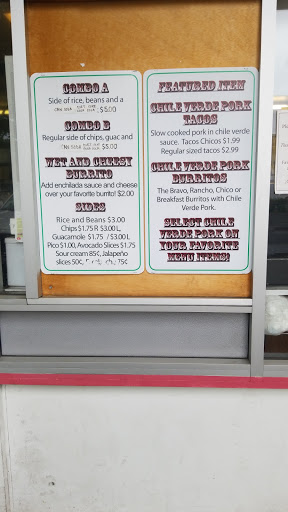 COMBO A
Side of rice, beans and a
$5.00
COMBO B
Regular side of chips, guac and
$5.00
WET AND CHEESY
BURRITO
Add enchilada sauce and cheese
over your favorite burrito! $2.00
SIDES
Rice and Beans $3.00
Chips $1.75 R $3.00 L,
Guacamole $1.75 / $3.00 L
Pico $1.00, Avocado Slices $1.75
Sour cream 85¢, Jalapeño
slices 50¢, 75¢
FEATURED ITEM
CHILE VERDE PORK
TACOS
Slow cooked pork in chile verde
sauce. Tacos Chicos $1.99
Regular sized tacos $2.99
CHILE VERDE PORK
BURRITOS
The Bravo, Rancho, Chico or
Breakfast Burritos with Chile
Verde Pork.
SELECT CHILE
VERDE PORK ON
YOUR FAVORITE
MENU ITEMS!